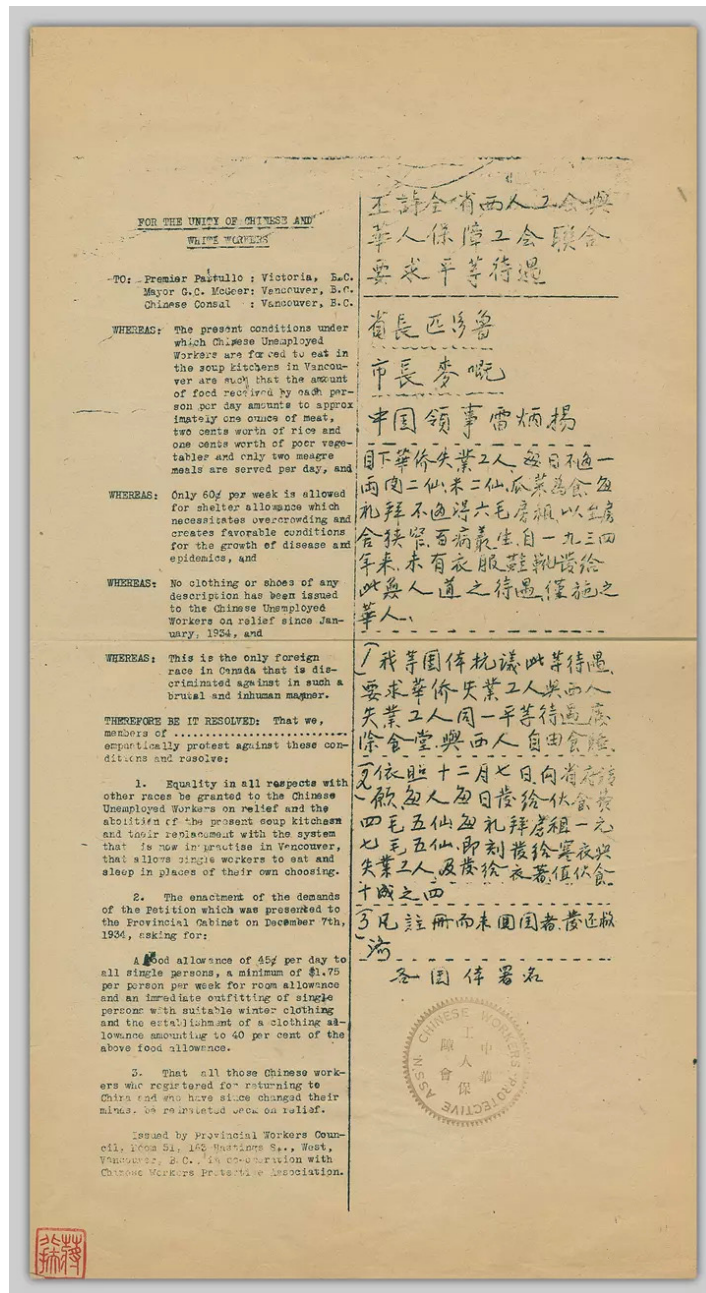 FOR THE UNITY OF CHINESE AND
WHITE WORKERS
TO: Premier Pattullo : Victoria, B.C.
Mayor G.C. McGeer: Vancouver, B.C.
Chinese Consal : Vancouver, B.C.
WHEREAS: The present conditions under
which Chinese Unemployed
Workers are forced to eat in
the soup kitchens in Vancou-
ver are such that the amount
of food received by each per-
son per day amounts to approx
imately one ounce of meat,
two cents worth of rice and
one cents worth of poor vege-
tables and only two meagre
meals are served per day, and
WHEREAS: Only 60¢ per week is allowed
for shelter allowance which
necessitates overcrowding and
creates favorable conditions
for the growth of disease and
epidemics, and
WHEREAS: No clothing or shoes of any
description has been issued
to the Chinese Unemployed
Workers on relief since Jan-
uary, 1934, and
WHEREAS: This is the only foreign
race in Canada that is dis-
criminated against in such a
brutal and inhuman manner.
THEREFORE BE IT RESOLVED: That we,
members of ..........................
emphatically protest against these con-
ditions and resolve:
1. Equality in all respects with
other races be granted to the Chinese
Unemployed Workers on relief and the
abolition of the present soup kitchen
and their replacement with the system
that is now in practise in Vancouver,
that allows single workers to eat and
sleep in places of their own choosing.
2. The enactment of the demands
of the Petition which was presented to
the Provincial Cabinet on December 7th,
1934, asking for:
A food allowance of 45¢ per day to
all single persons, a minimum of $1.75
per person per week for room allowance
and an immediate outfitting of single
persons with suitable winter clothing
and the establishment of a clothing al-
lowance amounting to 40 per cent of the
above food allowance.
3. That all those Chinese work-
ers who registered for returning to
China and who have since changed their
minds, be reinstated back on relief.
Issued by Provincial Workers Coun-
cil, Room 51, 163 Hastings St., West,
Vancouver, B.C., in co-operation with
Chinese Workers Protective Association.
全省西人工会與
華人保障工会联合
要求平等待遇
省長匹多魯
市長麥嘅
中国領事雷炳揚
目下華侨失業工人,每日不過一
兩肉二仙米二仙瓜菜為食,每
礼拜不過得六毛房租,以至房
舍狭窄,百病叢生,自一九三四
年来,未有衣服鞋靴發给
此無人道之待遇,僅施之
華人、
1)我等团体抗議此等待遇,
要求華侨失業工人與西人
失業工人同一平等待遇廢
除食堂,與西人自由食睡、
2)依照十二月七日,向省府請
願每人每日發给伙食費
四毛五仙,每礼拜房租一元
七毛五仙,即刻發给寒衣與
失業工人,及發给衣著值伙食
十成之四
3)凡註冊而未回国者,發还救
济
各团体署名
CHINESE WORKERS PROTECTIVE ASS'N.
中華
工人保
障會